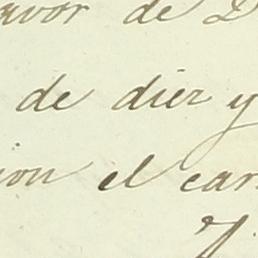 avor de D
de diez y
ion el car